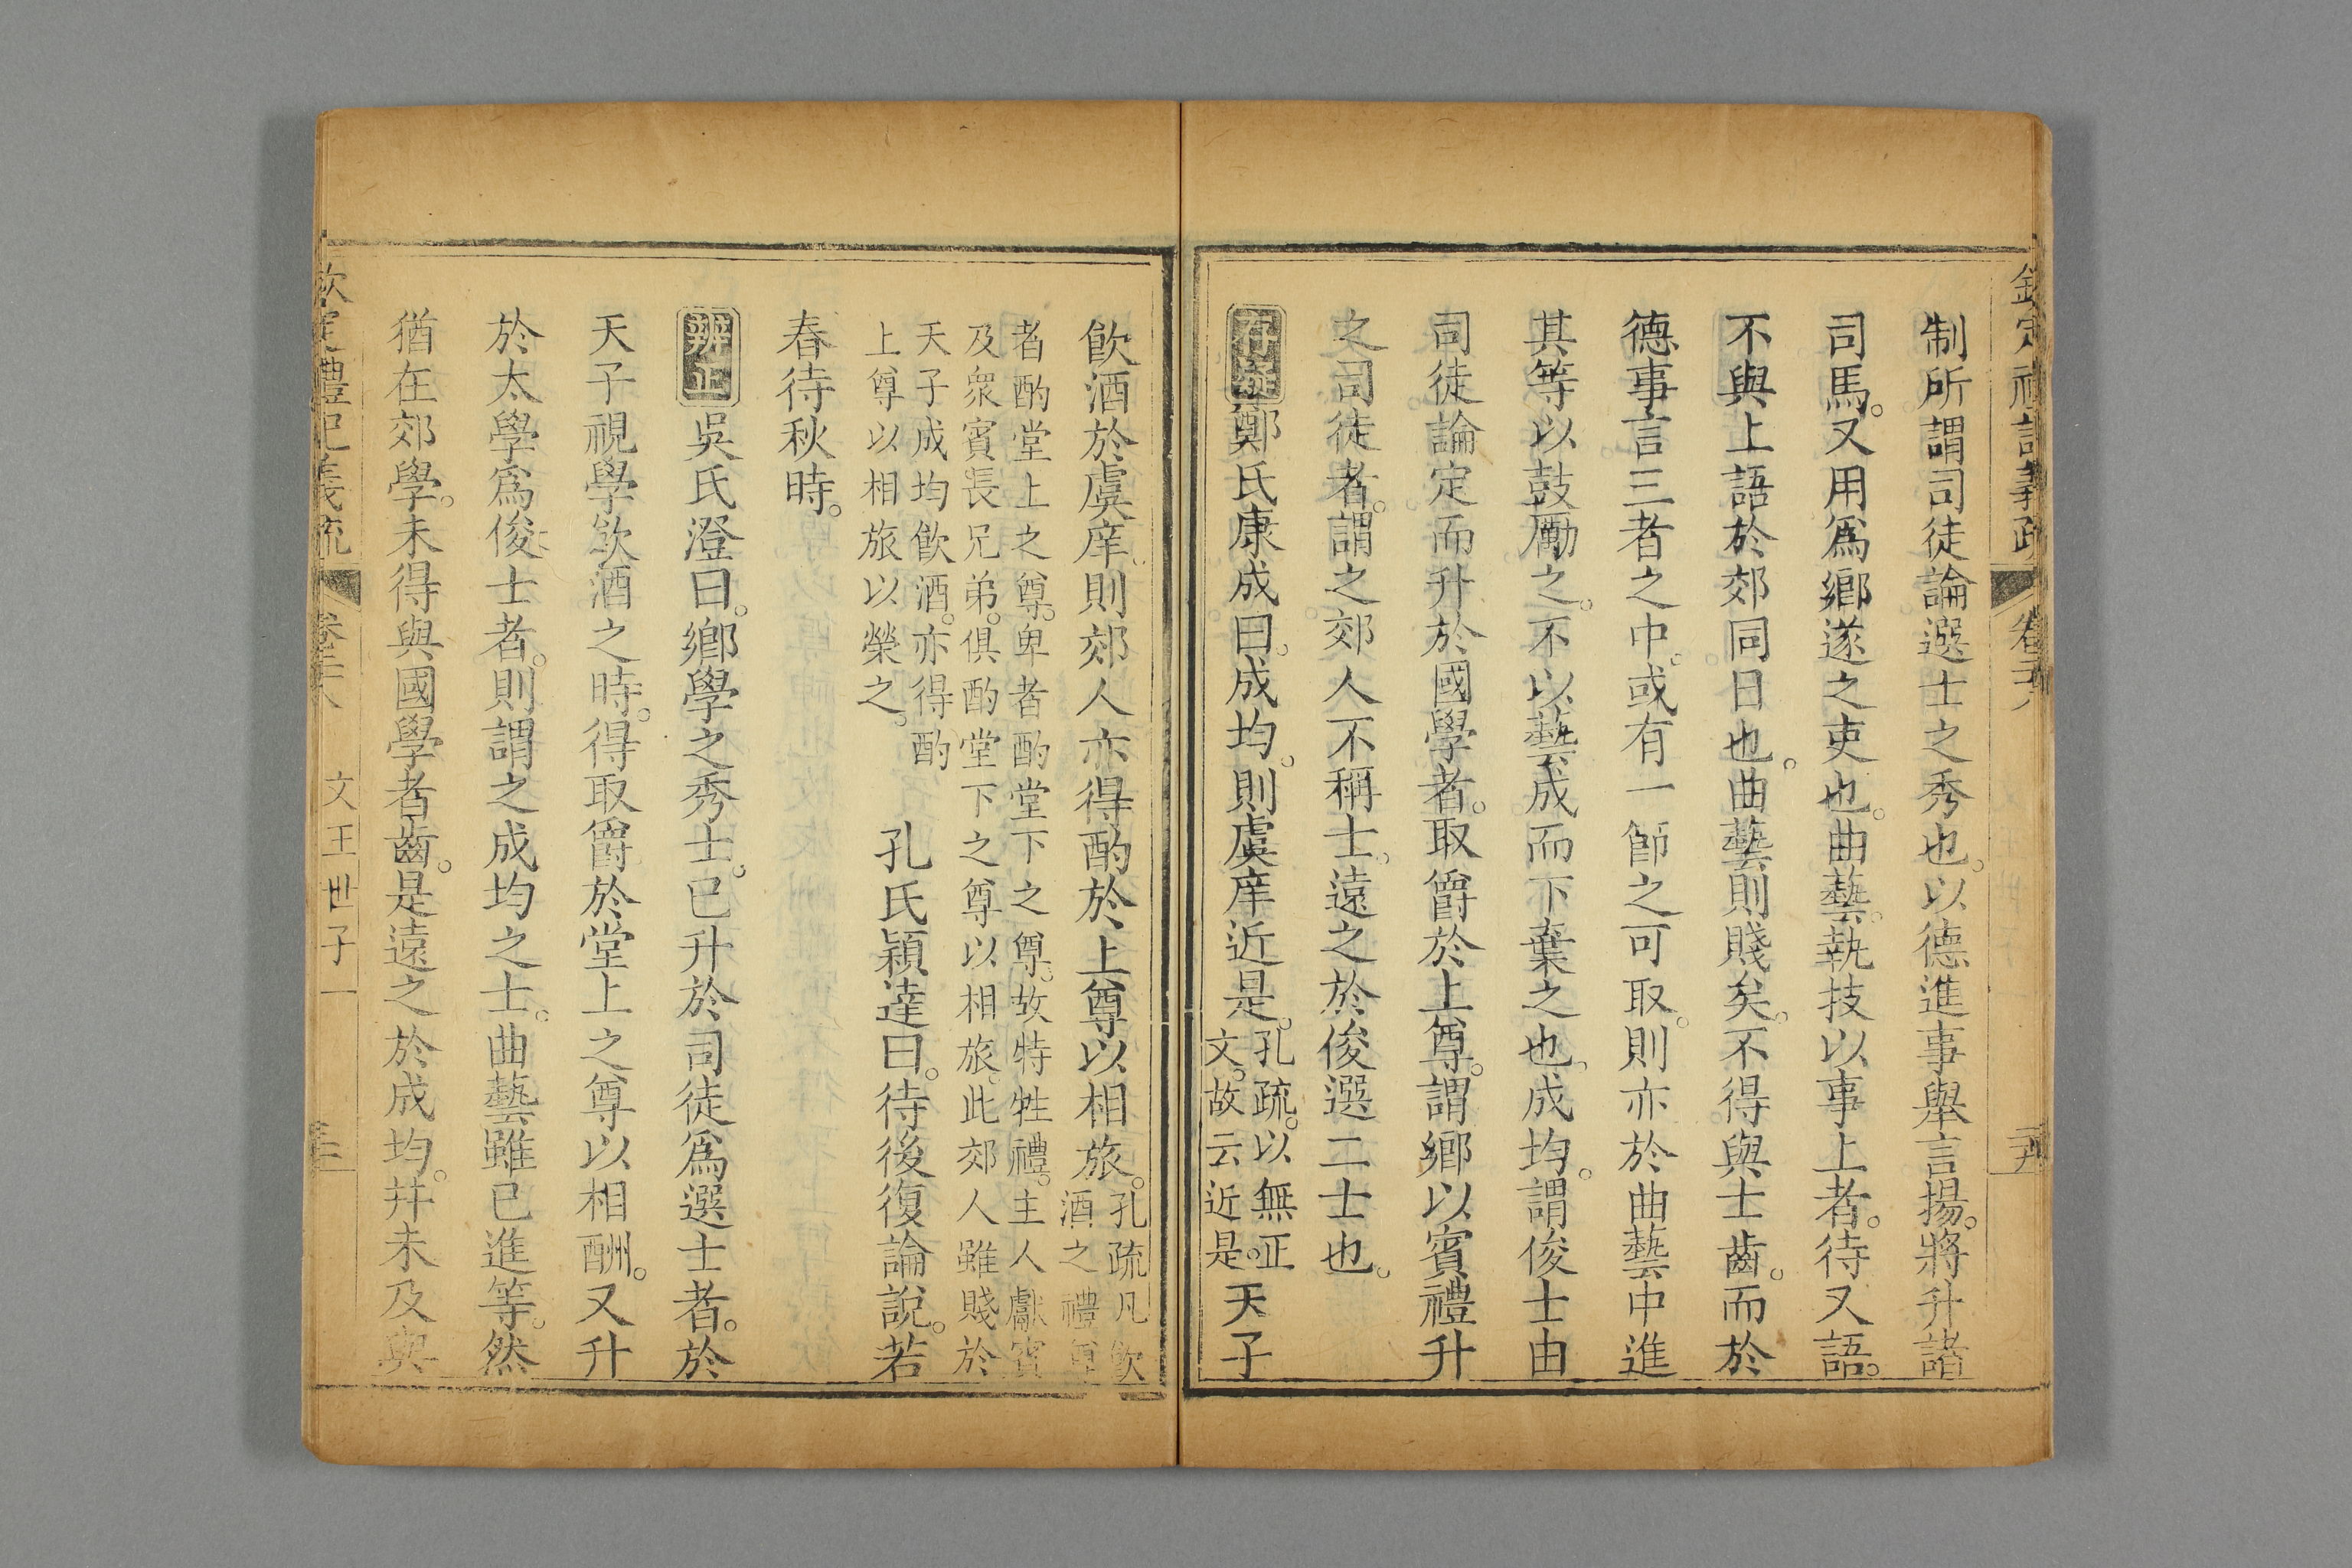 欽定禮記義疏 卷二十八
制所謂司徒論選士之秀也。以德進事舉言揚。將升諸
司馬。又用爲鄉遂之吏也。曲藝。執技以事上者。待又語。
不與上語於郊同日也。曲藝則賤矣。不得與士齒。而於
德事言三者之中。或有一節之可取。則亦於曲藝中進
其等以鼓勵之。不以藝成而下棄之也。成均。謂俊士由
司徒論定而升於國學者。取爵於上尊。謂鄉以賓禮升
之司徒者。謂之郊人不稱士。遠之於俊選二士也。
存疑 鄭氏康成曰。成均。則虞庠近是。孔疏。以無正文。故云近是。天子
飲酒於虞庠。則郊人亦得酌於上尊以相旅。孔疏凡飲酒之禮尊
者酌堂上之尊。卑者酌堂下之尊。故特牲禮。主人獻賓
及衆賓長兄弟。俱酌堂下之尊以相旅。此郊人雖賤於
天子成均飲酒。亦得酌
上尊以相旅以榮之。 孔氏穎達曰。待後復論說。若
春待秋時。
辨正 吳氏澄曰。鄉學之秀士。已升於司徒爲選士者。於
天子視學飲酒之時。得取爵於堂上之尊以相酬。又升
於太學爲俊士者。則謂之成均之士。曲藝雖已進等。然
猶在郊學。未得與國學者齒。是遠之於成均。幷未及與
欽定禮記義疏 卷二十八 文王世子一